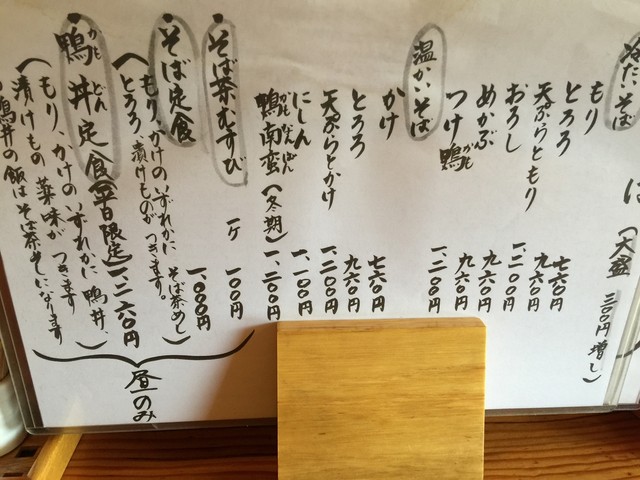 冷たいそば
ば（大盛 三〇〇円増し）
もり 七六〇円
とろろ 九六〇円
天ぷらともり 一、二〇〇円
おろし 九六〇円
めかぶ 九六〇円
つけ鴨 一、二〇〇円
かも
温かいそば
かけ 七六〇円
とろろ 九六〇円
天ぷらとかけ 一、二〇〇円
にしん 一、一〇〇円
鴨南蛮（冬期） 一、二〇〇円
かもなんばん
そば茶むすび 一ケ 一〇〇円
そば定食 一、〇〇〇円
（もり、かけのいずれかに そば茶めし）
とろろ、漬けものがつきます。
鴨丼定食（平日限定） 一、二六〇円
かもどん
（もり、かけのいずれかに 鴨丼、）
漬けもの 薬味がつきます
鴨丼の飯はそば茶めしになります
昼のみ